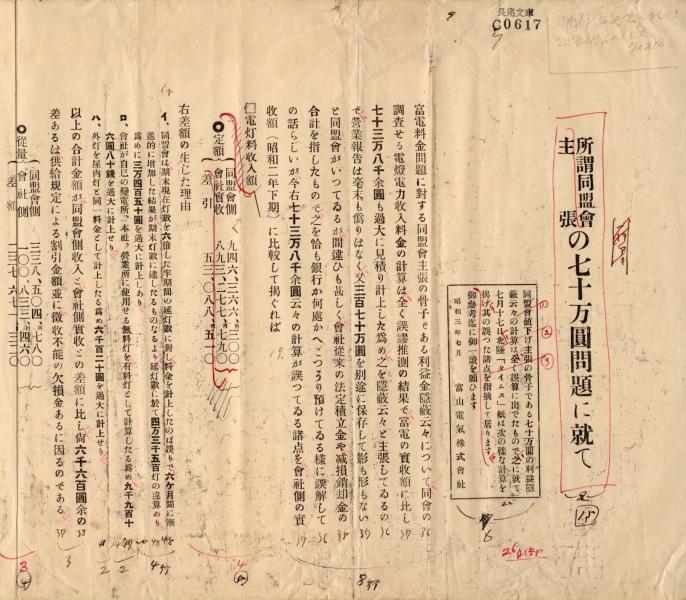 長尾文庫
C0617
所謂同盟會
主張
の七十万圓問題に就て
同盟會値下げ主張の骨子である七十万圓の利益隱
蔽云々の計算は全く誤算に出でたもので之に就て
七月十七日北陸「タイムス」紙は次の樣な計算を
掲げ其の誤つた諸點を指摘して居ります
御參考迄に御一讀を願ひます
昭和三年七月 富山電氣株式會社
富電料金問題に對する同盟會主張の骨子である利益金隱蔽云々について同會の
調査せる電燈電力收入料金の計算は全く誤謬推測の結果で富電の實收額に比し
七十三万八千余圓も過大に見積り計上した爲め之を隱蔽云々と主張してゐるの
で營業報告は毫末も僞りはなく又三百七十万圓を別途に保存して影も形もない
と同盟會がいつてゐるが間違ひも甚しく會社從來の法定積立金や減損銷却金の
合計を指したもので之を恰も銀行か何處かへこつそり預けてゐる樣に誤解して
の話らしいが今右七十三万八千余圓云々の計算が誤つてゐる諸點を會社側の實
收額(昭和二年下期)に比較して掲ぐれば
□電灯料收入額
●定額
同盟會側 九四六、三六六、三〇〇
會社實收 八九三、二七七、七九〇
差引 五三、〇八八、五一〇
右差額の生じた理由
イ、同盟會は期末現在灯數を六倍した半期間の延灯數に對し料金を計上したのは誤りで六ケ月間に漸
進的に增加した結果が期末灯數に達したるものなるより延灯數に於て四万三千五百灯の違算あり
爲めに三万四百五十圓を過大に計上しあり
ロ、會社が自己の變電所、本社、營業所に使用せる無料灯を有料灯として計算したる爲め九千九百十
六圓八十錢を過大に計上せり
ハ、外灯を屋内灯と同一料金として計上したる爲め六千百二十圓を過大に計上せり
以上の合計金額が同盟會側收入と會社側實收との差額に比し尙六千六百圓余の
差あるは供給規定による割引金額並に徵收不能の欠損金あるに因るのである
●從量
同盟會側 三三八、五〇四、七八〇
會社側 一〇〇、八三三、四六〇
差額 二三七、六七一、三二〇